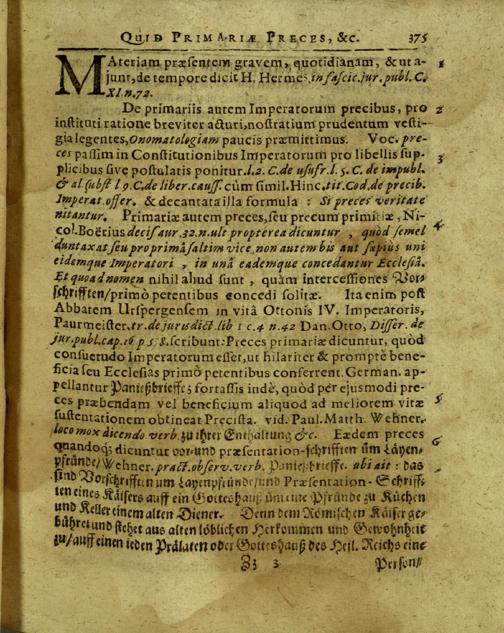 QUID PRIMARIÆ PRECES, &c. 375
MAteriam præsentem gravem, quotidianam, & ut a- 1
junt, de tempore dicit H. Hermes, in fascic. jur. publ. C.
XI. n. 72.
De primariis autem Imperatorum precibus, pro 2
instituti ratione breviter acturi, nostratium prudentum vesti-
gia legentes, Onomatologiam paucis præmittimus. Voc. pre-
ces passim in Constitutionibus Imperatorum pro libellis sup- 3
plicibus sive postulatis ponitur. l. 2. C. de usufr. l. 5. C. de impubl.
& al subst l 9. C. de liber. causs. cùm simil. Hinc, tit. Cod. de precib.
Imperat. offer. & decantata illa formula : Si preces veritate
nitantur. Primariæ autem preces, seu precum primitiæ, Ni- 4
col. Boërius decis aur. 32. n. ult propterea dicuntur, quòd semel
duntaxat seu pro primâ saltim vice, non autem bis aut sæpius uni
eidemque Imperatori, in unâ eademque concedantur Ecclesiâ.
Et quoad nomen nihil aliud sunt, quàm intercessiones Vor-
schrifften/ primò petentibus concedi solitæ. Ita enim post
Abbatem Urspergensem in vitâ Ottonis IV. Imperatoris,
Paurmeister. tr. de jurisdict. lib 1 c. 4 n. 42 Dan. Otto, Disser. de
jur. publ. cap. 16 p 5 8. scribunt: Preces primariæ dicuntur, quòd
consuetudo Imperatorum esset, ut hilariter & promptè bene-
ficia seu Ecclesias primò petentibus conferrent. German. ap-
pellantur Panißbrieffe; fortassis indè, quòd per ejusmodi pre-
ces præbendam vel beneficium aliquod ad meliorem vitæ 5
sustentationem obtineat Precista. vid. Paul. Matth. Wehner.
loco mox dicendo verb. zu ihrer Enthaltung &c. Eædem preces
quandoq; dicuntur vor- und præsentation-schrifften üm Läyen- 6
pfründe/ Wehner. pract. observ. verb. Panißbrieffe. ubi ait : das
sind Vorschrifften um Läyenpfründe/ und Præsentation-Schriff-
ten eines Käisers auff ein Gotteshauß üm eine Pfründe zu Küchen
und Keller einem alten Diener. Denn dem Römischen Käiser ge-
bühret und stehet aus alten löblichen Herkommen und Gewohnheit
zu/ auff einen ieden Prälaten oder Gotteshauß des Heil. Reichs eine
Zz 3 Person/